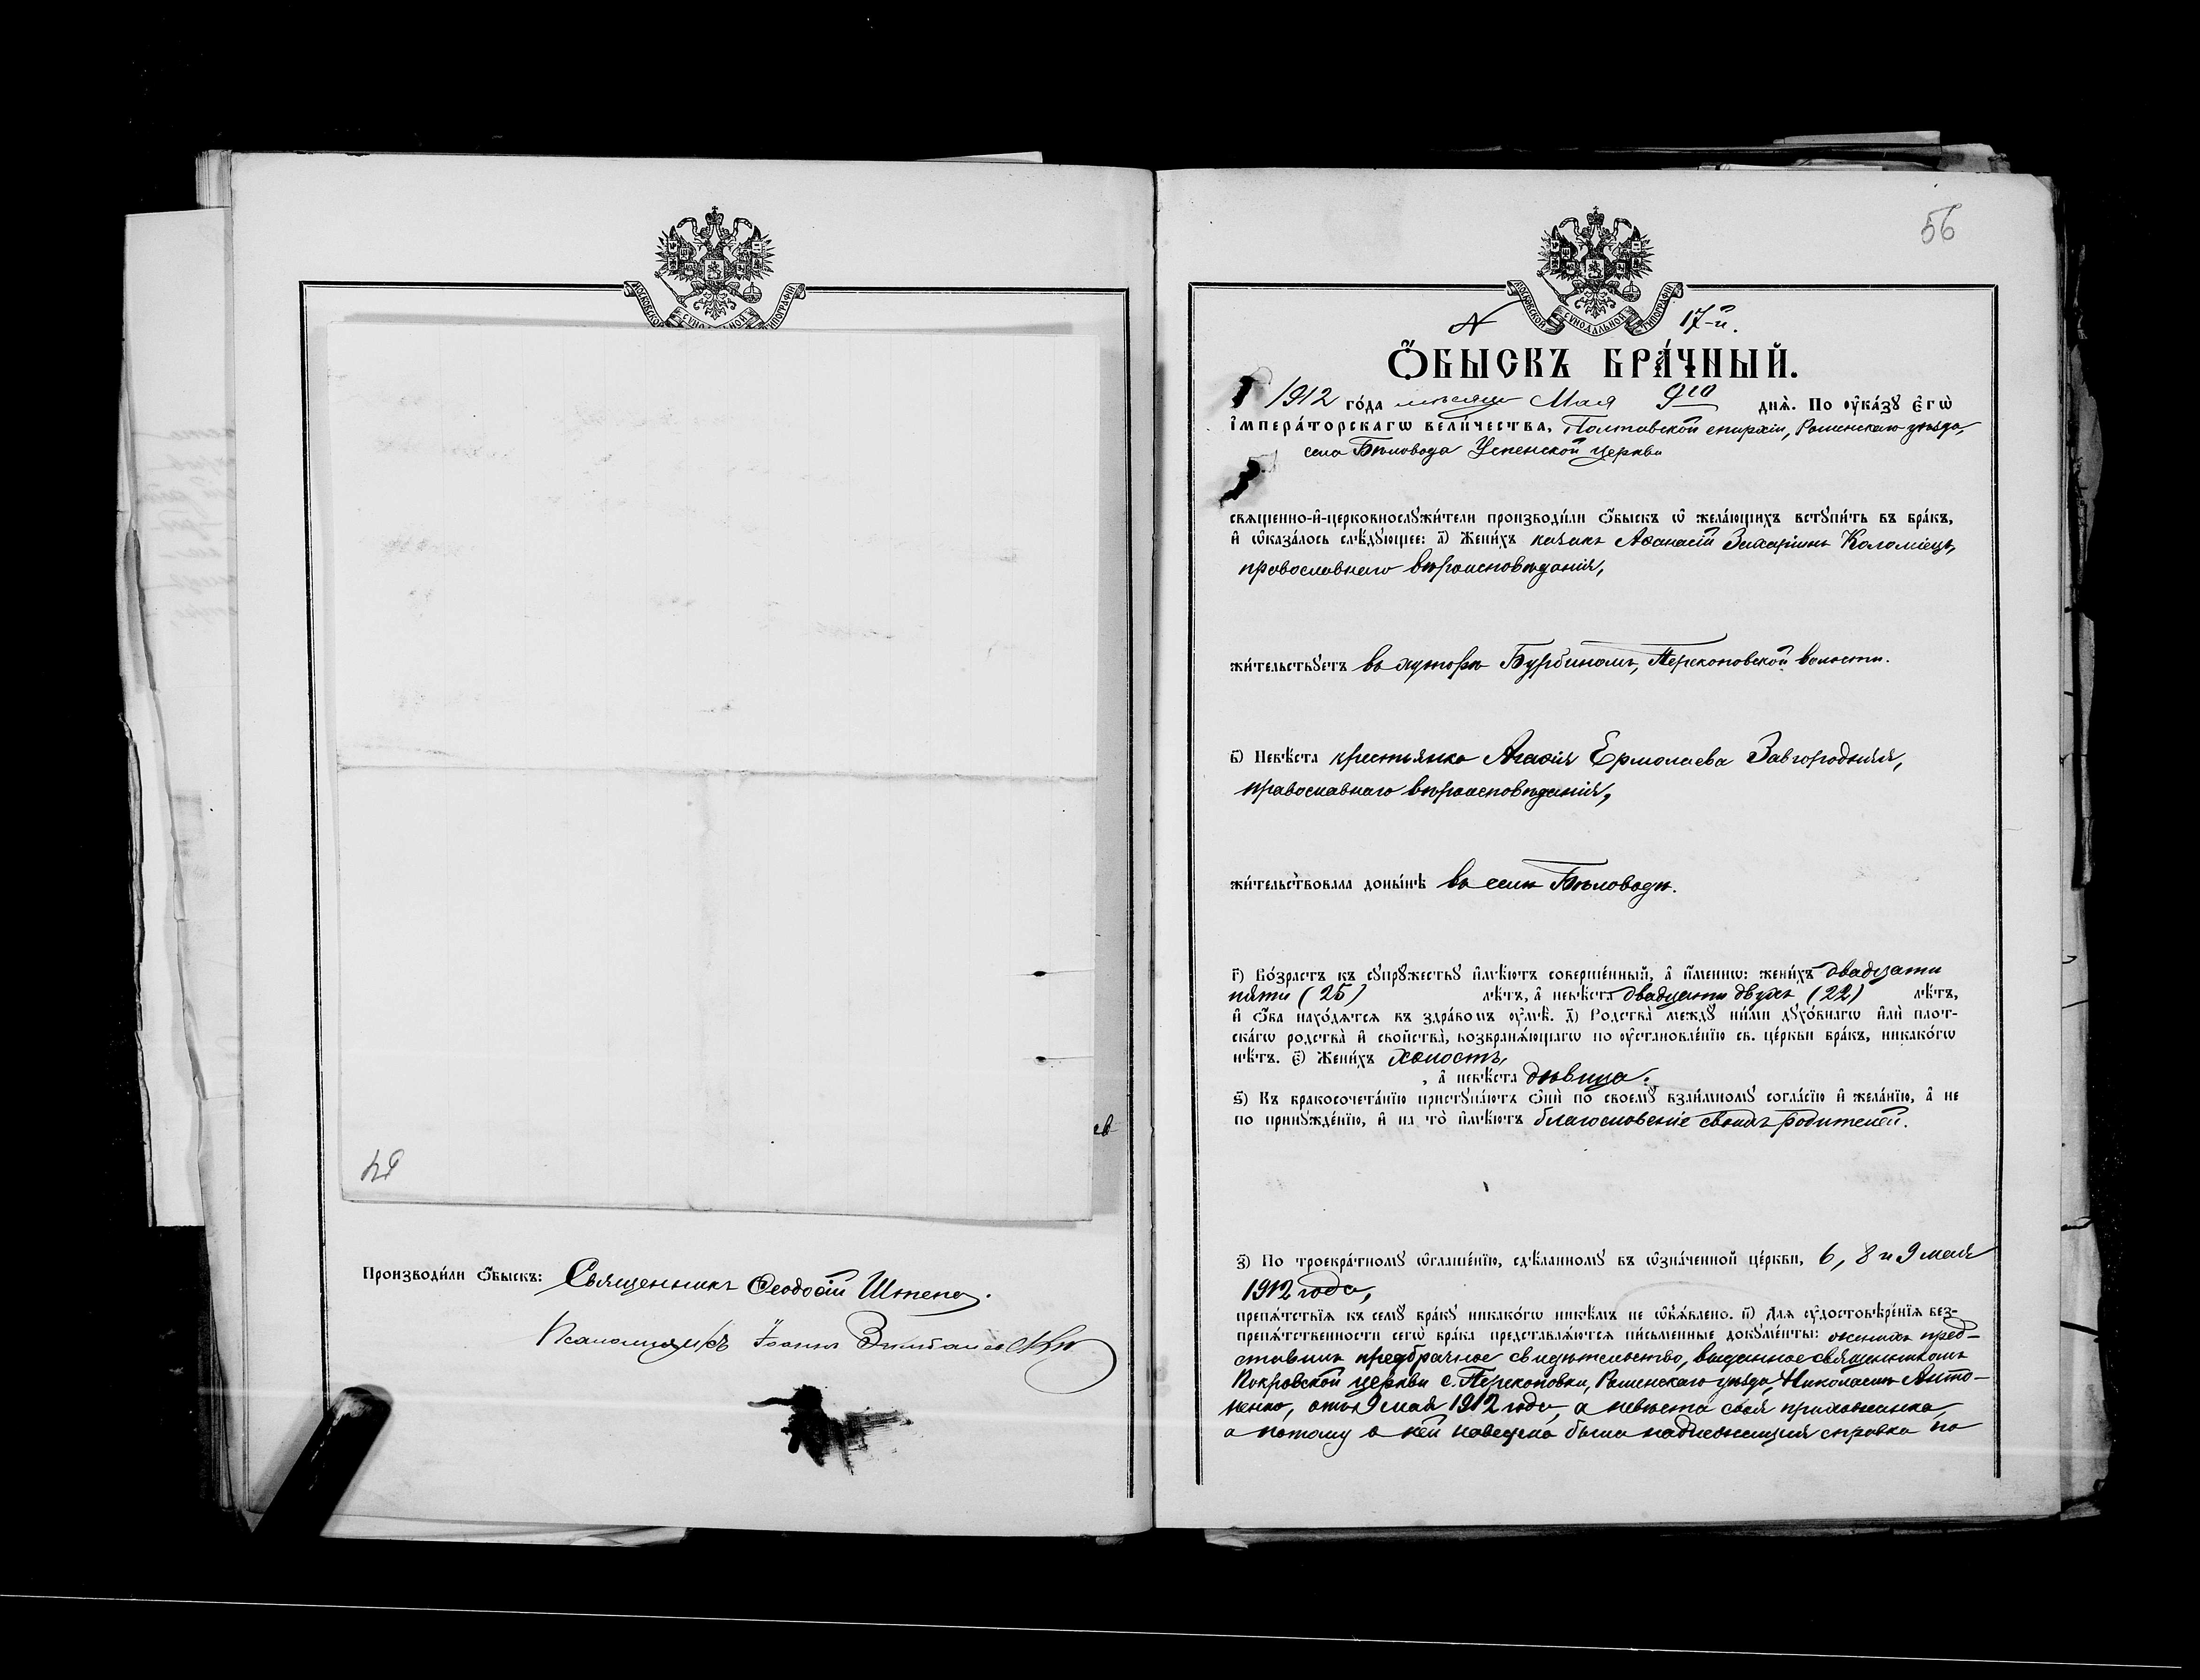 МОСКОВСКОЙ СѴНОДАЛЬНОЙ ТИПОГРАФІИ
54
св
Производи́ли ѻ҆́быскъ: Священникъ Ѳеодосій Штепа.
Псаломщикъ Іоаннъ
56
МОСКОВСКОЙ СѴНОДАЛЬНОЙ ТИПОГРАФІИ
№ 17-й.
Ѻ҆́БЫСКЪ БРА́ЧНЫЙ.
1912 го́да мѣсяца Мая 9го днѧ̀. По ᲂу҆ка́зꙋ є҆гѡ̀
і҆мпера́торскагѡ вели́чества, Полтавской епархіи, Роменскаго уѣзда,
села Бѣловода Успенской церкви
свѧще́нно-и҆-церковнослꙋжи́тели производи́ли ѻ҆́быскъ ѡ҆ жела́ющихъ встꙋпи́ть въ бра́къ,
и҆ ѡ҆каза́лось слѣ́дꙋющее: а҃) Жени́хъ козакъ Аѳанасій Захаріинъ Коломіецъ,
православнаго вѣроисповѣданія,
жи́тельствꙋетъ въ хуторѣ Бурбиномъ, Перекоповской волости.
в҃) Невѣ́ста крестьянка Агаѳія Ермолаева Завгородняя,
православнаго вѣроисповѣданія,
жи́тельствовала доны́нѣ въ селѣ Бѣловодѣ.
г҃) Во́зрастъ къ сꙋпрꙋ́жествꙋ и҆мѣ́ютъ соверше́нный, а҆ и҆́меннѡ: жени́хъ двадцати
пяти (25) лѣ́тъ, а҆ невѣ́ста двадцати двухъ (22) лѣ́тъ,
и҆ ѻ҆́ба нахо́дѧтсѧ въ здра́вомъ ᲂу҆мѣ̀. д҃) Родства̀ междꙋ̀ ни́ми дꙋхо́внагѡ и҆лѝ пло́т-
скагѡ родства̀ и҆ сво́йства, возбранѧ́ющагѡ по ᲂу҆становле́нїю св. це́ркви бра́къ, никако́гѡ
нѣ́тъ. є҃) Жени́хъ холостъ,
, а҆ невѣ́ста дѣвица.
ѕ҃) Къ бракосочета́нїю пристꙋпа́ютъ ѻ҆нѝ по своемꙋ̀ взаи́мномꙋ согла́сїю и҆ жела́нїю, а҆ не
по принꙋжде́нїю, и҆ на то̀ и҆мѣ́ютъ благословеніе своихъ родителей.
з҃) По троекра́тномꙋ ѡ҆глаше́нїю, сдѣ́ланномꙋ въ ѡ҆зна́ченной це́ркви, 6, 8 и 9 мая
1912 года,
препѧ́тствїѧ къ семꙋ̀ бра́кꙋ никако́гѡ никѣ́мъ не ѡ҆б̾ѧ́влено. и҃) Длѧ ᲂу҆достовѣре́нїѧ без-
препѧ́тственности сегѡ̀ бра́ка представлѧ́ютсѧ пи́сьменные докꙋме́нты: женихъ пред-
ставилъ предбрачное свидѣтельство, выданное священникомъ
Покровской церкви с. Перекоповки, Роменскаго уѣзда, Николаемъ Анто-
ненко, отъ 9 мая 1912 года, а невѣста своя прихожанка,
а потому о ней наведена была надлежащая справка по